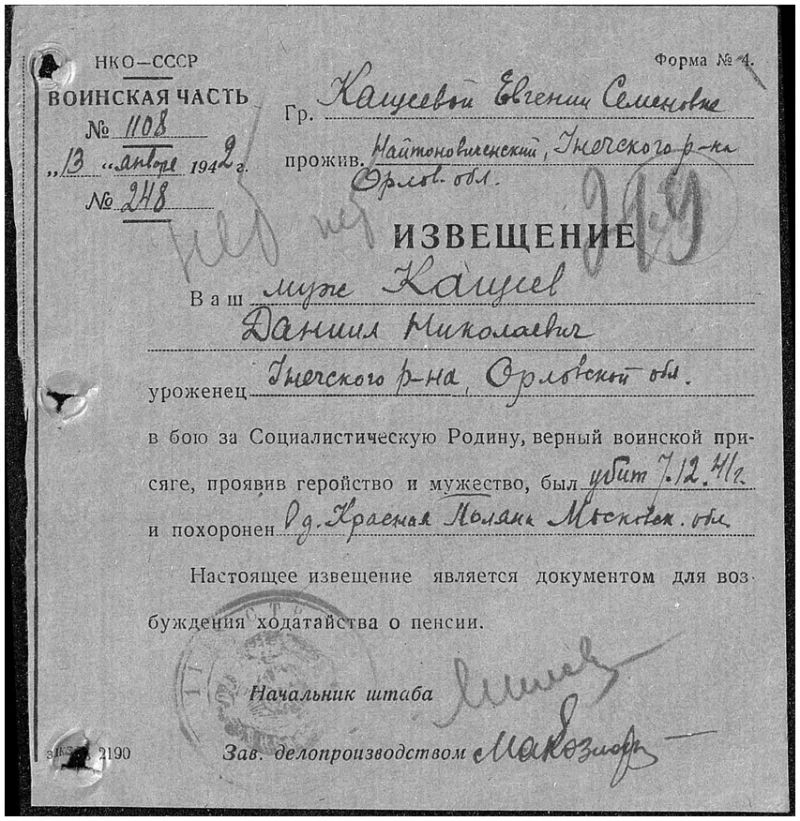 НКО—СССР
Форма № 4.
ВОИНСКАЯ ЧАСТЬ
№ 1108
„13 “ январе 1942 г.
№ 248
Гр. Кащеевой Евгении Семеновне
прожив. р-на
Орлов. обл.
нет нет
ИЗВЕЩЕНИЕ
Ваш муж Кащеев
Даниил Николаевич
уроженец р-на, Орловской обл.
в бою за Социалистическую Родину, верный воинской при-
сяге, проявив геройство и мужество, был убит 7.12.41г.
и похоронен д. Красная Поляна Московск. обл.
Настоящее извещение является документом для воз-
буждения ходатайства о пенсии.
Начальник штаба
2190
Зав. делопроизводством